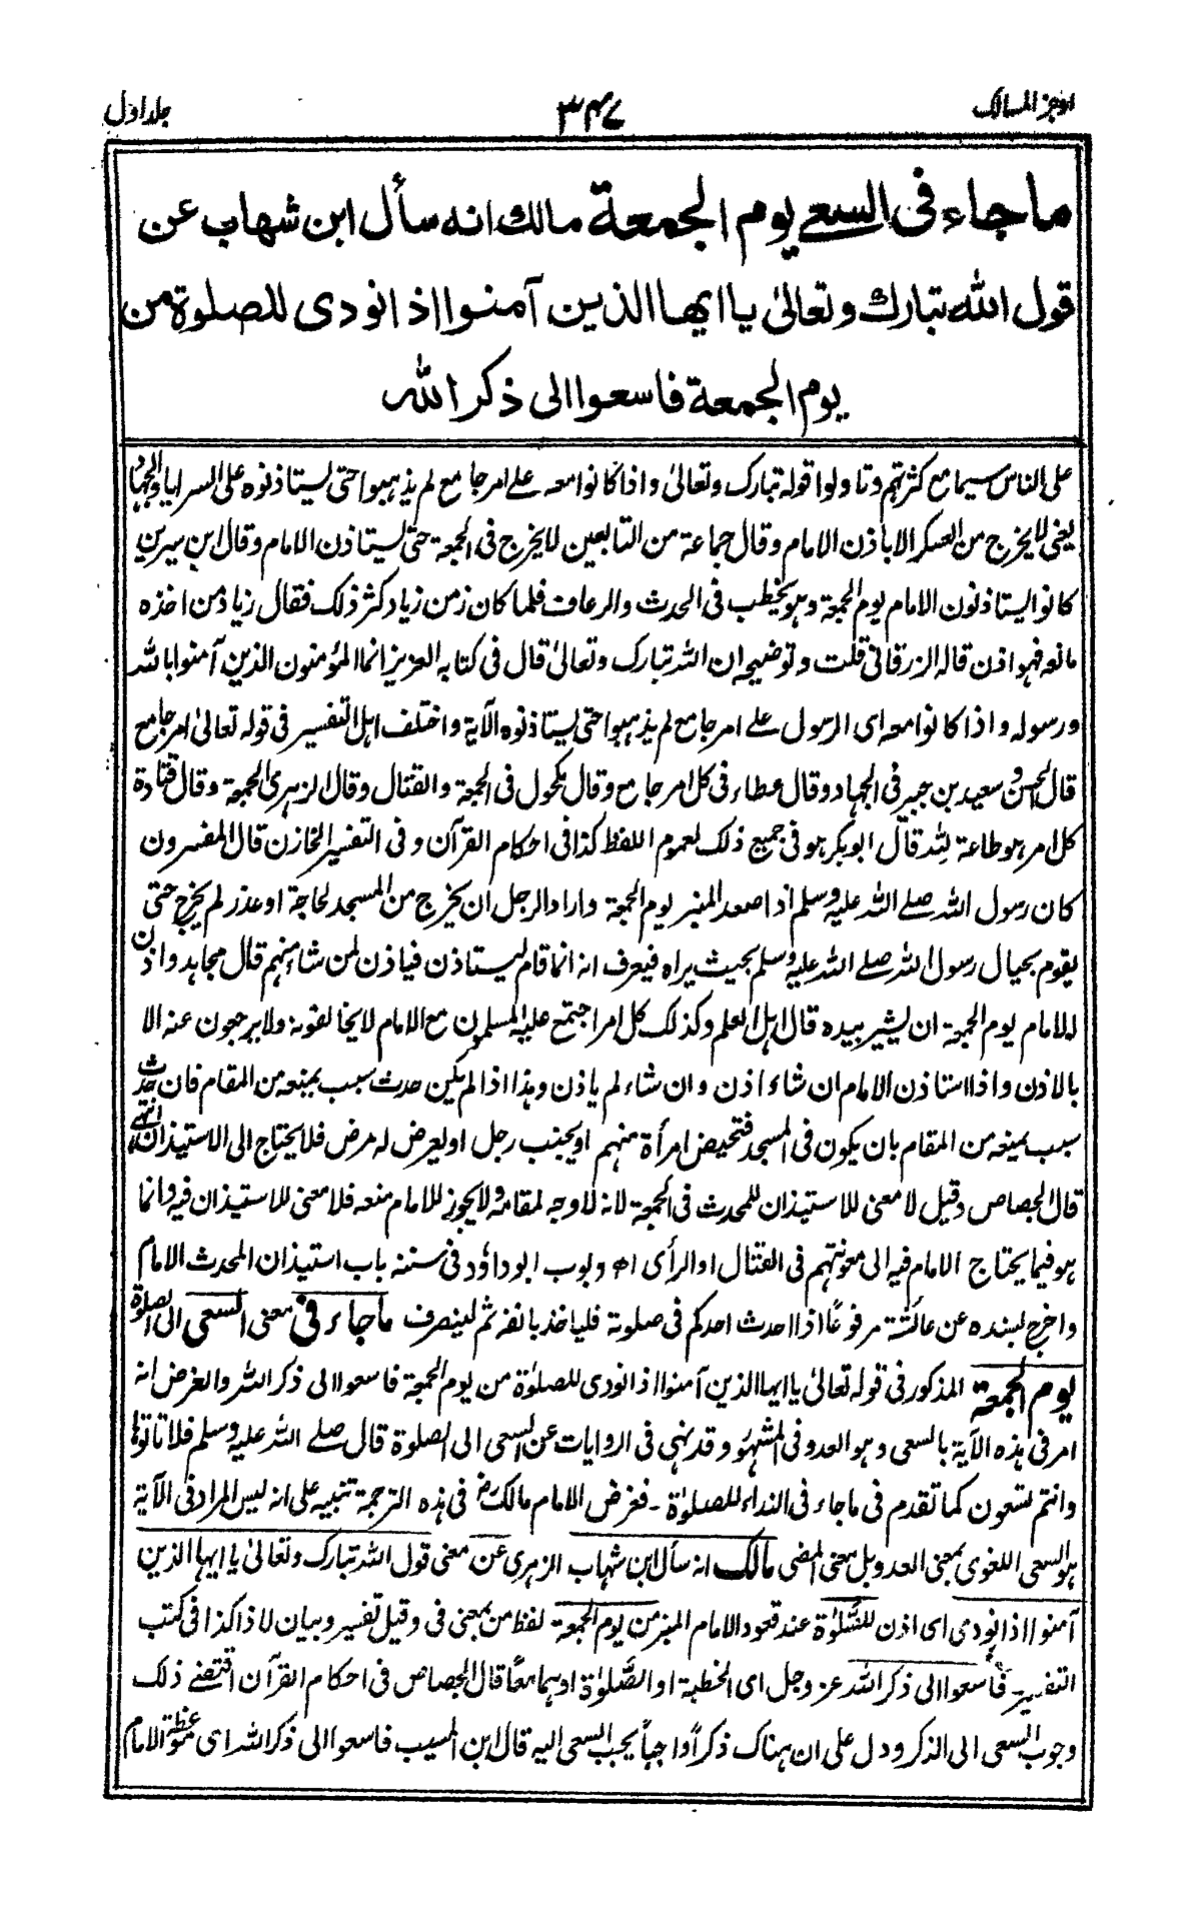 اوجز المسالک ۳۴۷ جلد اول
ما جاء فی السعی یوم الجمعة مالك انه سأل ابن شهاب عن
قول الله تبارك وتعالیٰ یا ایها الذین آمنوا اذا نودی للصلوة من
یوم الجمعة فاسعوا الی ذکر الله
علی الناس سیما مع کثرتهم وتاولوا قوله تبارک وتعالیٰ واذا کانوا معه علے امر جامع لم یذهبوا حتی یستاذنوه علی السرایا والجهاد
یعنی لا یخرج من العسکر الا باذن الامام وقال جماعة من التابعین لا یخرج فی الجمعة حتی یستاذن الامام وقال ابن سیرین
کانوا یستاذنون الامام یوم الجمعة وهو یخطب فی الحدث والرعاف فلما کان زمن زیاد کثر ذلک فقال زیاد من اخذ
مانعه فهو اذن قاله الزرقانی قلت وتوضیحه ان الله تبارک وتعالیٰ قال فی کتابه العزیز انما المؤمنون الذین آمنوا بالله
ورسوله واذا کانوا معه ای الرسول علے امر جامع لم یذهبوا حتی یستاذنوه الآیة واختلف اهل التفسیر فی قوله تعالیٰ امر جامع
قال الحسن وسعید بن جبیر فی الجهاد وقال عطاء فی کل امر جامع وقال مکحول فی الجمعة والقتال وقال الزهری الجمعة وقال قتادة
کل امر هو طاعة لله قال ابوبکر هو فی جمیع ذلک لعموم اللفظ کذا فی احکام القرآن وفی التفسیر الخازن قال المفسرون
کان رسول الله صلے الله علیه وسلم اذا صعد المنبر یوم الجمعة واراد الرجل ان یخرج من المسجد لحاجة او عذر لم یخرج حتی
یقوم بحیال رسول الله صلے الله علیه وسلم بحیث یراه فیعرف انه انما قام لیستاذن فیاذن لمن شاء منهم قال مجاهد واذن
الامام یوم الجمعة ان یشیر بیده قال اهل العلم وکذلک کل امر اجتمع علیه المسلمون مع الامام لا یخالفونه ولا یرجعون عنه الا
بالاذن واذا استاذن الامام ان شاء اذن وان شاء لم یاذن وهذا اذا لم یکن حدث سبب یمنعه من المقام فان حدث
سبب یمنعه من المقام بان یکون فی المسجد فتحیض امرأة منهم او یجنب رجل او یعرض له مرض فلا یحتاج الی الاستیذان انتهی
قال الجصاص وقیل لا معنی للاستیذان للمحدث فی الجمعة لانه لا وجه لمقامه ولا یجوز للامام منعه فلا معنی للاستیذان فیه وانما
هو فیما یحتاج الامام فیه الی معونتهم فی القتال او الرأی اھ وبوب ابو داؤد فی سننه باب استیذان المحدث الامام
واخرج بسنده عن عائشة مرفوعًا اذا احدث احدکم فی صلوته فلیاخذ بانفه ثم لینصرف ما جاء فی معنی السعی الی الصلوة
یوم الجمعة المذکور فی قوله تعالیٰ یا ایها الذین آمنوا اذا نودی للصلوٰة من یوم الجمعة فاسعوا الی ذکر الله والغرض انه
امر فی هذه الآیة بالسعی وهو العدو فی المشهور وقد نهی فی الروایات عن السعی الی الصلوة قال صلے الله علیه وسلم فلا تاتوها
وانتم تسعون کما تقدم فی ما جاء فی النداء للصلوٰة ۔ فغرض الامام مالک رض فی هذه الترجمة تنبیه علی انه لیس المراد فی الآیة
هو السعی اللغوی بمعنی العدو بل بمعنی المضی مالک انه سأل ابن شهاب الزهری عن معنی قول الله تبارک وتعالیٰ یا ایها الذین
آمنوا اذا نودی ای اذن للصلوٰة عند قعود الامام المنبر من یوم الجمعة لفظ من بمعنی فی وقیل تفسیر وبیان لاذا کذا فی کتب
التفسیر فاسعوا الی ذکر الله عز وجل ای الخطبة او الصلوٰة او هما معًا قال الجصاص فی احکام القرآن اقتضے ذلک
وجوب السعی الی الذکر ودل علی ان هناک ذکراً واجباً یجب السعی الیه قال ابن المسیب فاسعوا الی ذکر الله ای موعظة الامام